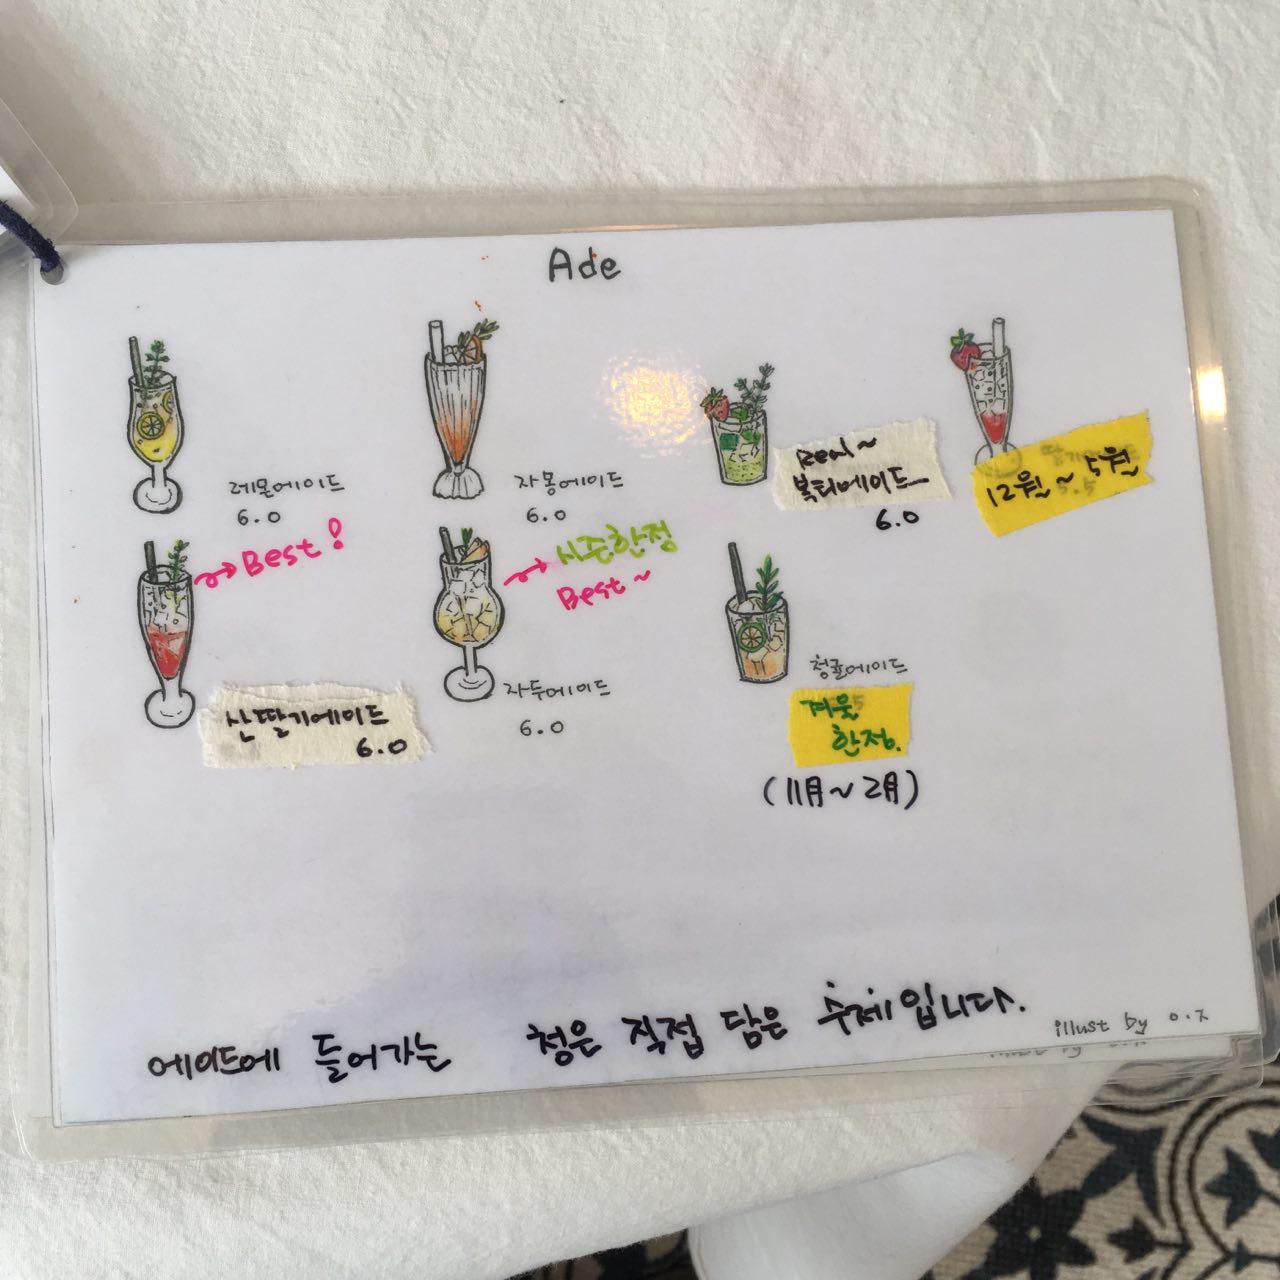 Ade
레몬에이드
6.0
자몽에이드
6.0
Real~
복티에이드
6.0
12월~5월
→Best!
산딸기에이드
6.0
→시즌한정
Best~
자두에이드
6.0
청귤에이드
겨울
한정.
(11月~2月)
에이드에 들어가는 청은 직접 담은 수제입니다.
illust by o.ㅈ